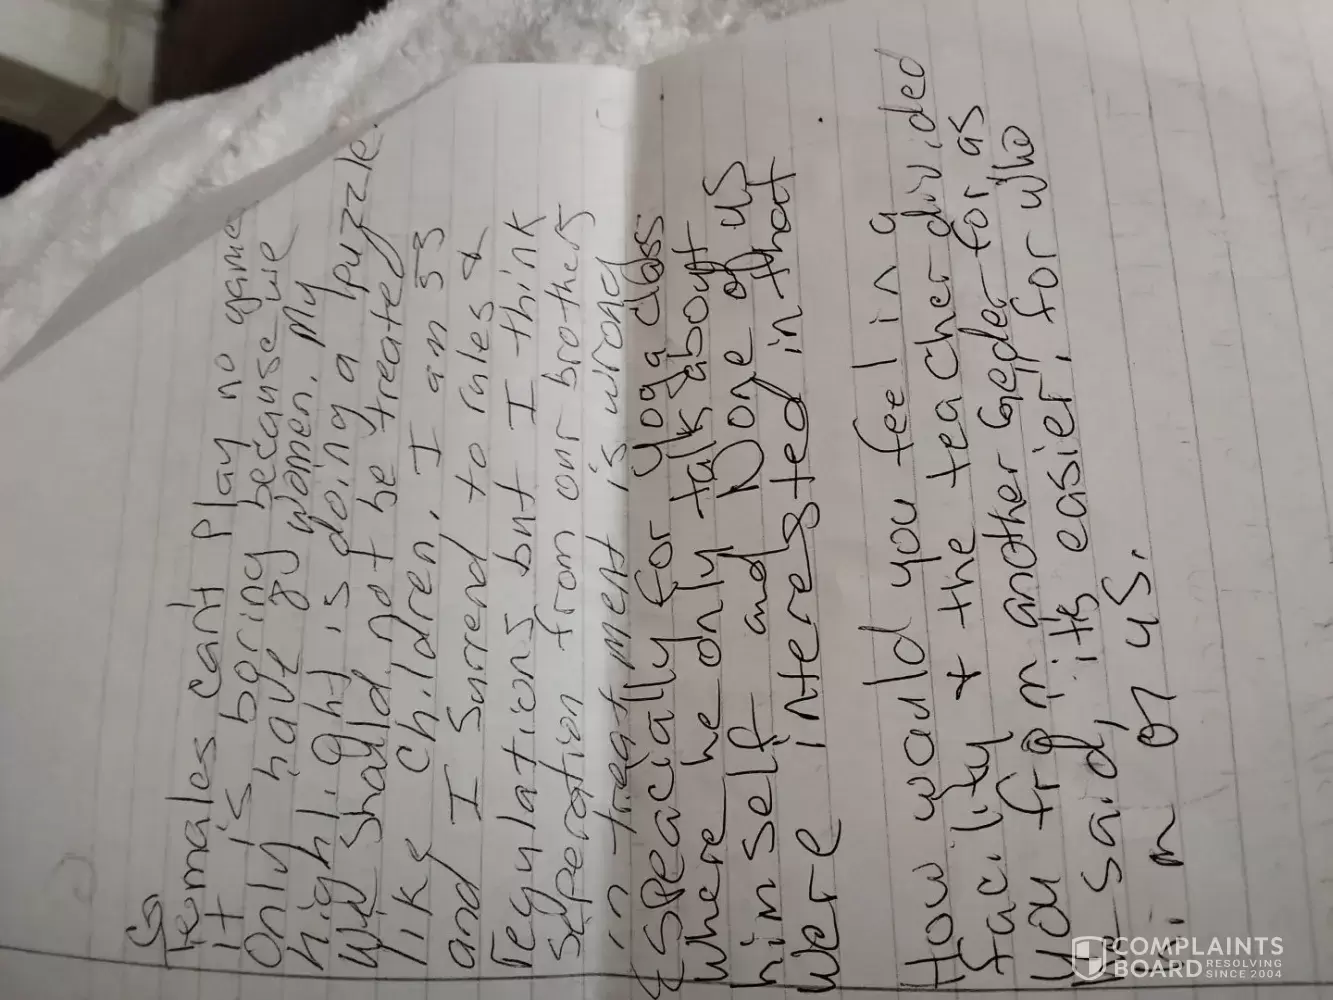 Females can't play no game
it is boring because we
only have zy women. My
highlight is doing a puzzle.
We should not be treated
like children. I am 53
and I surrend to rules &
regulations but I think
seperation from our brothers
in treatment is wrong
Especially for yoga class
where he only talks about
himself and None of us
were interested in that
How would you feel in a
facility & the teacher divided
you from another Geder for as
he said, it's easier, for who
him or us.
COMPLAINTS
BOARD RESOLVING
SINCE 2004